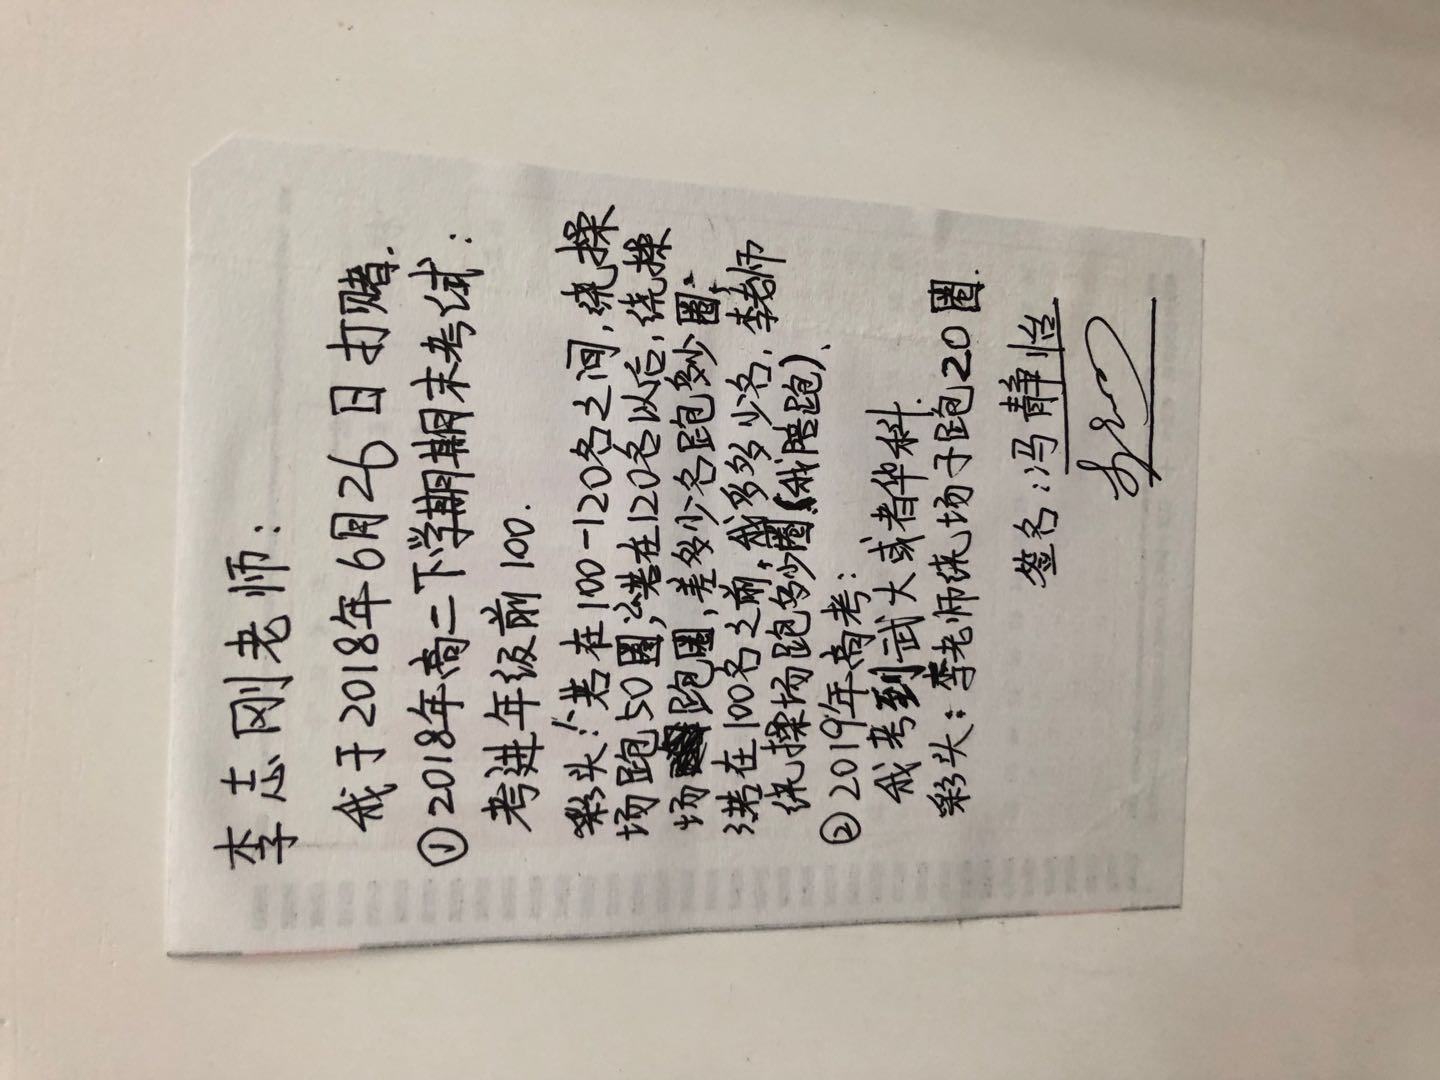 李志刚老师：
我于2018年6月26日打赌.
①2018年高二下学期期末考试：
考进年级前100.
彩头：1、若在100-120名之间，绕操
场跑50圈；2、若在120名以后，绕操
场跑圈，差多少名跑多少圈；
3、若在100名之前，我多多少名，李老师
绕操场跑多少圈（我陪跑）.
②2019年高考：
我考到武大或者华科.
彩头：李老师绕场子跑20圈.
签名：冯静怡